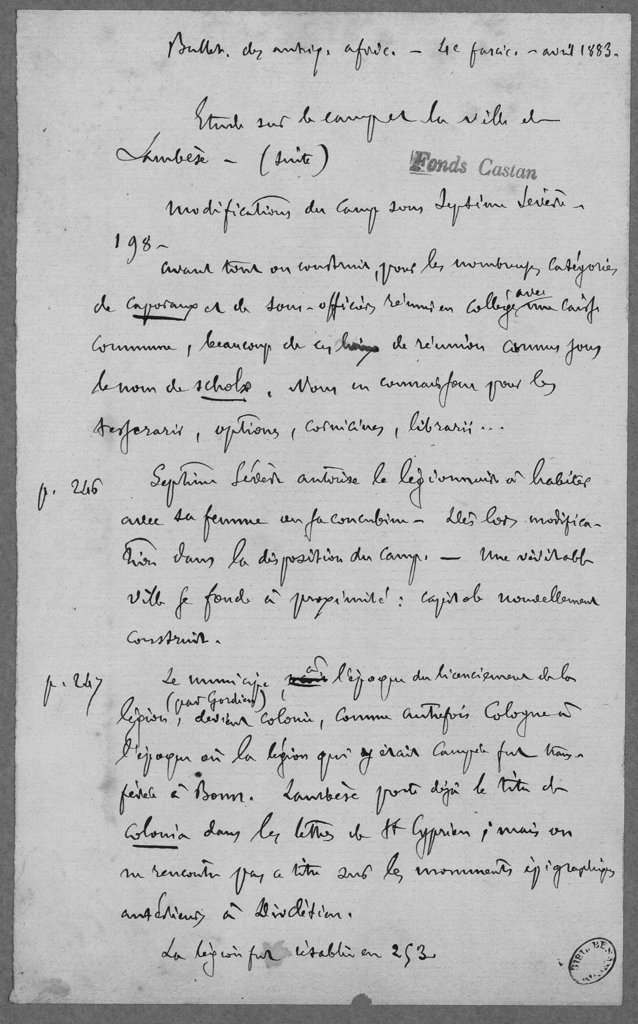 Bullet. des antiq. afric. - 4e fascic. - avril 1883.
Etude sur le camp et la ville de
Lambèse - (suite)
Fonds Castan
Modifications du camp sous Septime Sévère -
198 -
avant tout on construit, pour les nombreuses catégories
de caporaux et de sous-officiers réunis en collège, avec une caisse
commune, beaucoup de ces lieux de réunion connus sous
le nom de scholæ. Nous en connaissons pour les
tesserarii, optiones, cornicines, librarii...
p. 246
Septime Sévère autorise le légionnaire à habiter
avec sa femme ou sa concubine - Dès lors modifica-
tion dans la disposition du camp. - Une véritable
ville se fonde à proximité : capitole nouvellement
construit.
p. 247
Le municipe, à l'époque du licenciement de la
légion, (par Gordien) devient colonie, comme autrefois Cologne à
l'époque où la légion qui y était campée fut trans-
férée à Bonn. Lambèse porte déjà le titre de
colonia dans les lettres de St Cyprien ; mais on
ne rencontre pas ce titre sur les monuments épigraphiques
antérieurs à Dioclétien.
La légion fut rétablie en 253
BIBL. BES